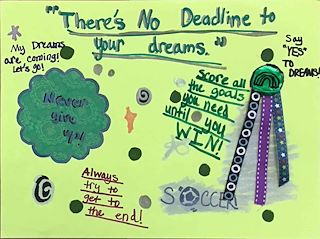 "There's No Deadline to
your dreams."
My Dreams
are coming!
Let's go!
Say
"YES"
TO
DREAMS!
Never
give
up!
Score all
the goals
you need
until you
WIN!
Always
try to
get to
the end!
SOCCER